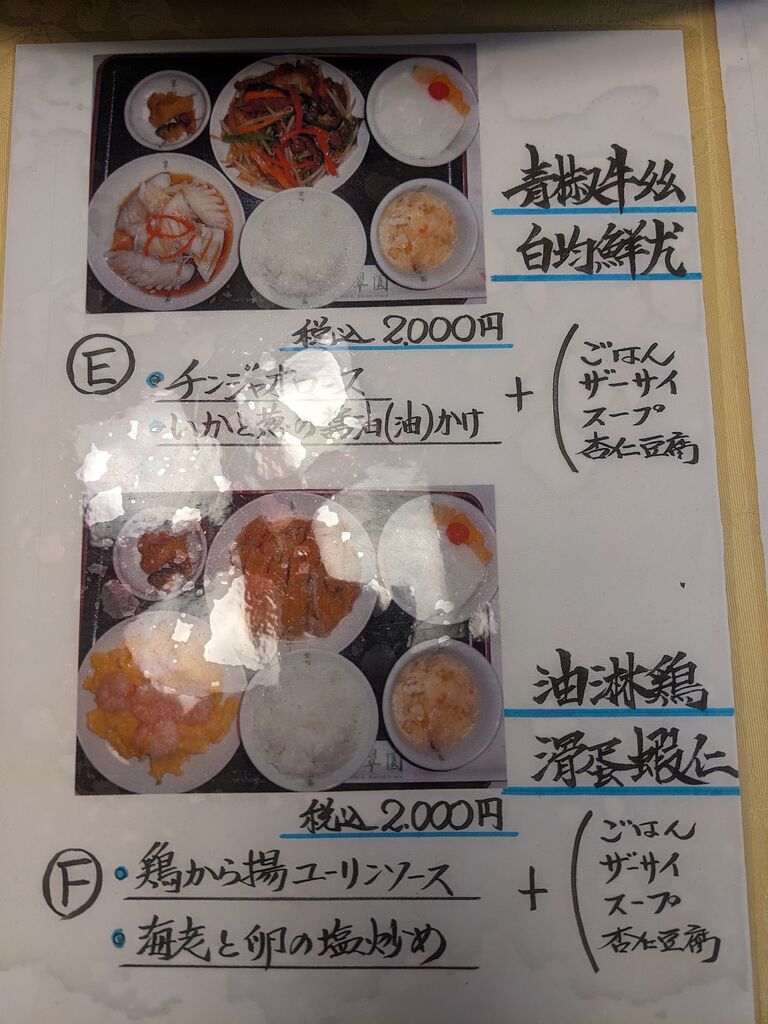 青椒牛丝
白灼鮮尤
翠園
税込 2.000円
Ⓔ ・チンジャオロース
・いかと葱の醤油(油)かけ
+
ごはん
ザーサイ
スープ
杏仁豆腐
油淋鶏
滑蛋蝦仁
翠園
税込 2.000円
Ⓕ ・鶏から揚ユーリンソース
・海老と卵の塩炒め
+
ごはん
ザーサイ
スープ
杏仁豆腐